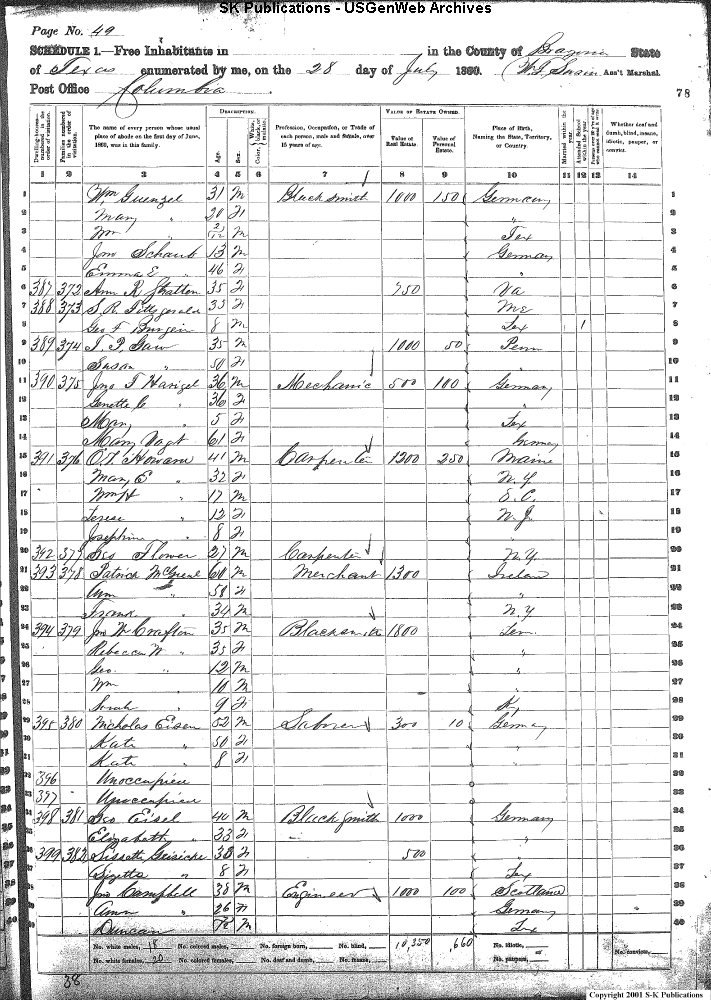 SK Publications - USGenWeb Archives
Page No. 49
SCHEDULE 1.—Free Inhabitants in in the County of Brazoria State
of Texas enumerated by me, on the 28 day of July 1860. Ass't Marshal.
Post Office Columbia 78
Dwelling-houses—numbered in the order of visitation. Families numbered in the order of visitation. The name of every person whose usual place of abode on the first day of June, 1860, was in this family. DESCRIPTION. Age. Sex. Color, White, black, or mulatto. Profession, Occupation, or Trade of each person, male and female, over 15 years of age. VALUE OF ESTATE OWNED. Value of Real Estate. Value of Personal Estate. Place of Birth, Naming the State, Territory, or Country. Married within the year. Attended School within the year. Whether deaf and dumb, blind, insane, idiotic, pauper, or convict.
1 2 3 4 5 6 7 8 9 10 11 12 13 14
1 Wm Guenzel 31 M Blacksmith 1000 150 Germany 1
2 Mary " 20 F " 2
3 Wm " 2/12 M Tex 3
4 Jno Schaub 13 M Germany 4
5 Emma E " 46 F " 5
6 387 372 Ann R. Stratton 35 F 750 Va 6
7 388 373 S. R. Fitzgerald 33 F Me 7
8 Geo F Burgin 8 M Tex 1 8
9 389 374 T. P. Gaw 35 M 1000 50 Penn 9
10 Susan " 50 F " 10
11 390 375 Jno F Harigel 36 M Mechanic 500 100 Germany 11
12 Genette C " 36 F " 12
13 Mary " 5 F Tex 13
14 Mary Vogt 61 F Germany 14
15 391 376 O. T. Howard 41 M Carpenter 1200 250 Maine 15
16 Mary E " 32 F N.Y. 16
17 Wm H " 17 M S.C. 17
18 " 12 F N.J. 18
19 Josephine " 8 F " 19
20 392 377 Geo Flower 27 M Carpenter N.Y. 20
21 393 378 Patrick 60 M Merchant 1300 Ireland 21
22 Ann " 58 F " 22
23 Frank " 34 M N.Y 23
24 394 379 Jno W Crafton 35 M Blacksmith 1800 Ten. 24
25 Rebecca W " 35 F " 25
26 Geo. " 12 M " 26
27 Wm " 10 M " 27
28 Sarah " 9 F Ky 28
29 395 380 Nicholas Eisen 52 M Laborer 300 10 Germany 29
30 Kate " 50 F " 30
31 Kate " 8 F " 31
32 396 Unoccupied 32
33 397 Unoccupied 33
34 398 381 Geo Eisel 40 M Blacksmith 1000 Germany 34
35 Elizabeth " 33 F " 35
36 399 382 Lissett 38 F 500 " 36
37 Lizette " 8 F Tex 37
38 Jno Campbell 38 M Engineer 1000 100 Scotland 38
39 Ann " 26 F Germany 39
40 Duncan M Tex 40
No. white males, 18 No. colored males, No. foreign born, No. blind, 10,350 660 No. idiotic,
No. white females, 20 No. colored females, No. deaf and dumb, No. insane, No. paupers, No. convicts,
38
Copyright 2001 S-K Publications